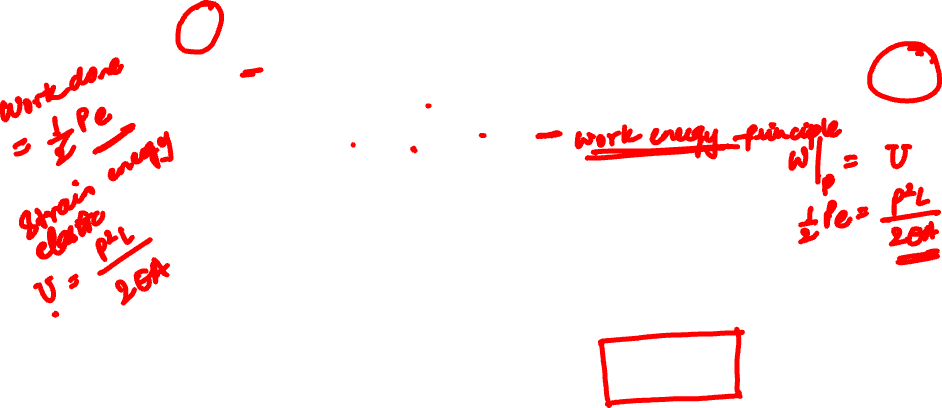 Work done
= 1/2 Pe
Strain energy
elastic
U = P²L/2EA
Work energy principle
W|p = U
1/2 Pe = P²L/2EA